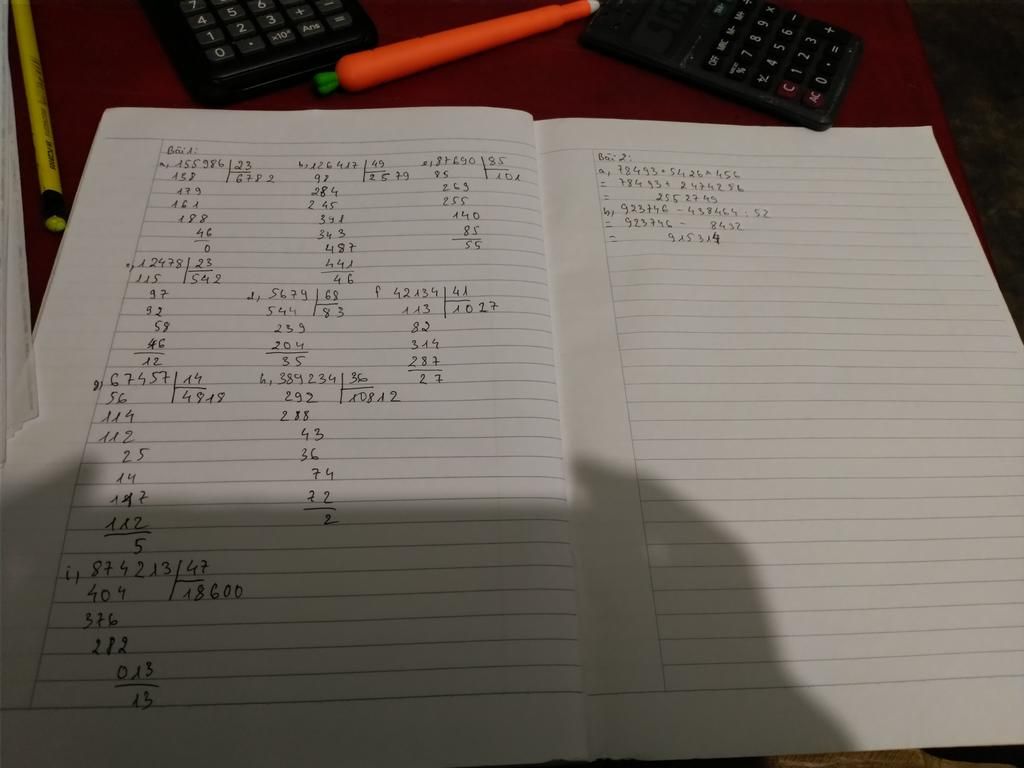 Bài 1:
a, 155986 | 23
138 | 6782
179
161
188
46
0
b, 126417 | 49
98 | 2579
284
245
391
343
487
441
46
87690 | 85
85 | 101
269
255
140
85
55
12478 | 23
115 | 542
97
92
58
46
12
5679 | 68
544 | 83
239
204
35
f 42134 | 41
113 | 1027
82
314
287
27
g, 67457 | 14
56 | 4818
114
112
25
14
117
112
5
h, 389234 | 36
292 | 10812
288
43
36
74
72
2
i, 874213 | 47
404 | 18600
376
282
013
13
Bài 2:
a, 78493 + 5426 × 456
= 78493 + 2474256
= 2552749
b, 923746 - 438464 : 52
= 923746 - 8432
= 915314